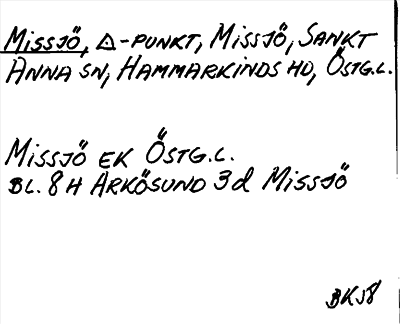 Missjö, △-punkt, Missjö, Sankt
Anna sn, Hammarkinds hd, Östg.l.
Missjö ek Östg.l.
Bl. 8 H Arkösund 3 d Missjö